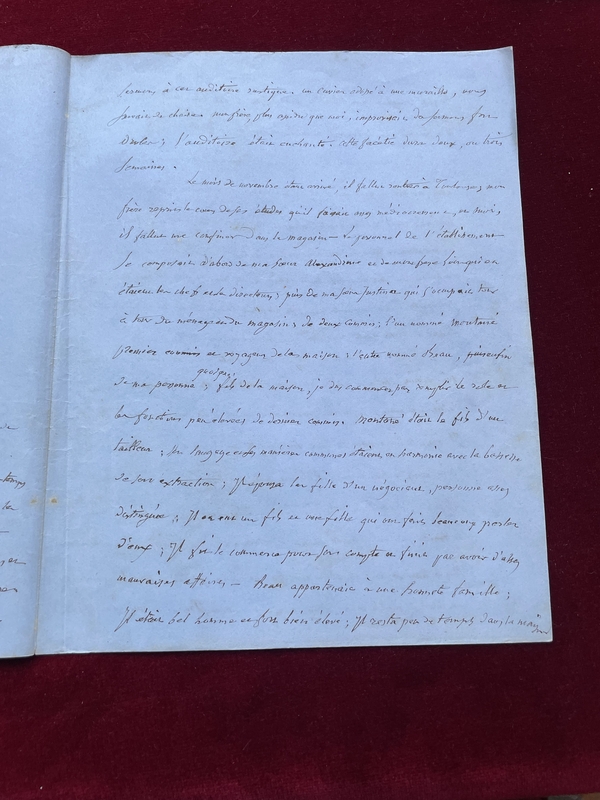 sermons à cet auditoire rustique. un cuvier adossé à une muraille, nous
servait de chaire. mon frère, plus hardi que moi, improvisait des sermons fort
drôles; l'auditoire était enchanté. cette facétie dura deux, ou trois
semaines.
Le mois de novembre étant arrivé, il fallut rentrer à Toulouse; mon
frère reprit le cours de ses études qu'il faisait assez médiocrement, et moi,
il fallut me confiner dans le magasin — Le personnel de l'établissement
se composait d'abord de ma sœur Alexandrine et de mon frère qui en
étaient les chefs et les directeurs; puis de ma sœur Justine qui s'occupait tour
à tour du ménage et du magasin; de deux commis; l'un nommé Montané
premier commis et voyageur de la maison; l'autre nommé Beau, puis enfin
quoique
de ma personne; fils de la maison, je dus commencer par remplir le rôle et
les fonctions peu élevées de dernier commis. Montané était le fils d'un
tailleur; son langage et ses manières communes étaient en harmonie avec la bassesse
de son extraction; Il épousa la fille d'un négociant, personne assez
distinguée; Il en eut un fils et une fille qui ont fait beaucoup parler
d'eux; Il fit le commerce pour son compte et finit par avoir d'assez
mauvaises affaires — Beau appartenait à une honnête famille;
Il était bel homme et fort bien élevé; Il resta peu de temps dans la maison